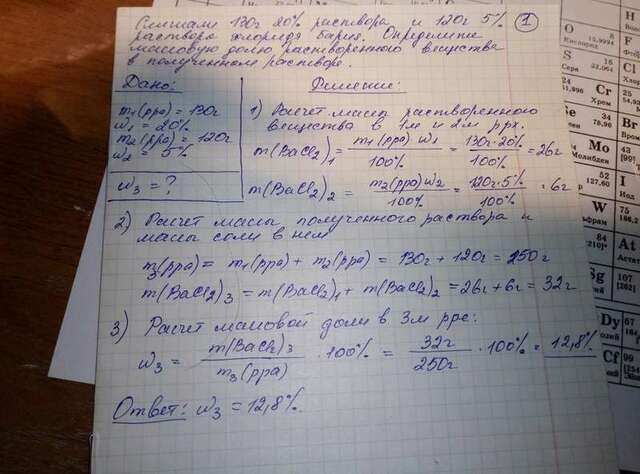 Смешали 130г 20% раствора и 120г 5% ①
раствора хлорида бария. Определите
массовую долю растворенного вещества
в полученном растворе.
Дано:
m₁(рра) = 130г
ω₁ = 20%
m₂(рра) = 120г
ω₂ = 5%
ω₃ = ?
Решение:
1) Расчет масс растворенного
вещества в 1м и 2м ррх.
m(BaCl₂)₁ = m₁(рра)·ω₁ / 100% = 130г·20% / 100% = 26г
m(BaCl₂)₂ = m₂(рра)ω₂ / 100% = 120г·5% / 100% = 6г
2) Расчет массы полученного раствора и
массы соли в нем
m₃(рра) = m₁(рра) + m₂(рра) = 130г + 120г = 250г
m(BaCl₂)₃ = m(BaCl₂)₁ + m(BaCl₂)₂ = 26г + 6г = 32г
3) Расчет массовой доли в 3м рре:
ω₃ = m(BaCl₂)₃ / m₃(рра) · 100% = 32г / 250г · 100% = 12,8%
Ответ: ω₃ = 12,8%
O 8
15,9994
Кислород
F
S 16
32,064
Сера
Cl
Cr 24
51,996
Хром
Se 34
78,96
Br
Mo 42
Молибден
43
[99]
52
127,60
I
Иод
W
75
186,2
84
[210]
At
Астат
Sg
107
[262]
Dy
67
Cf
99